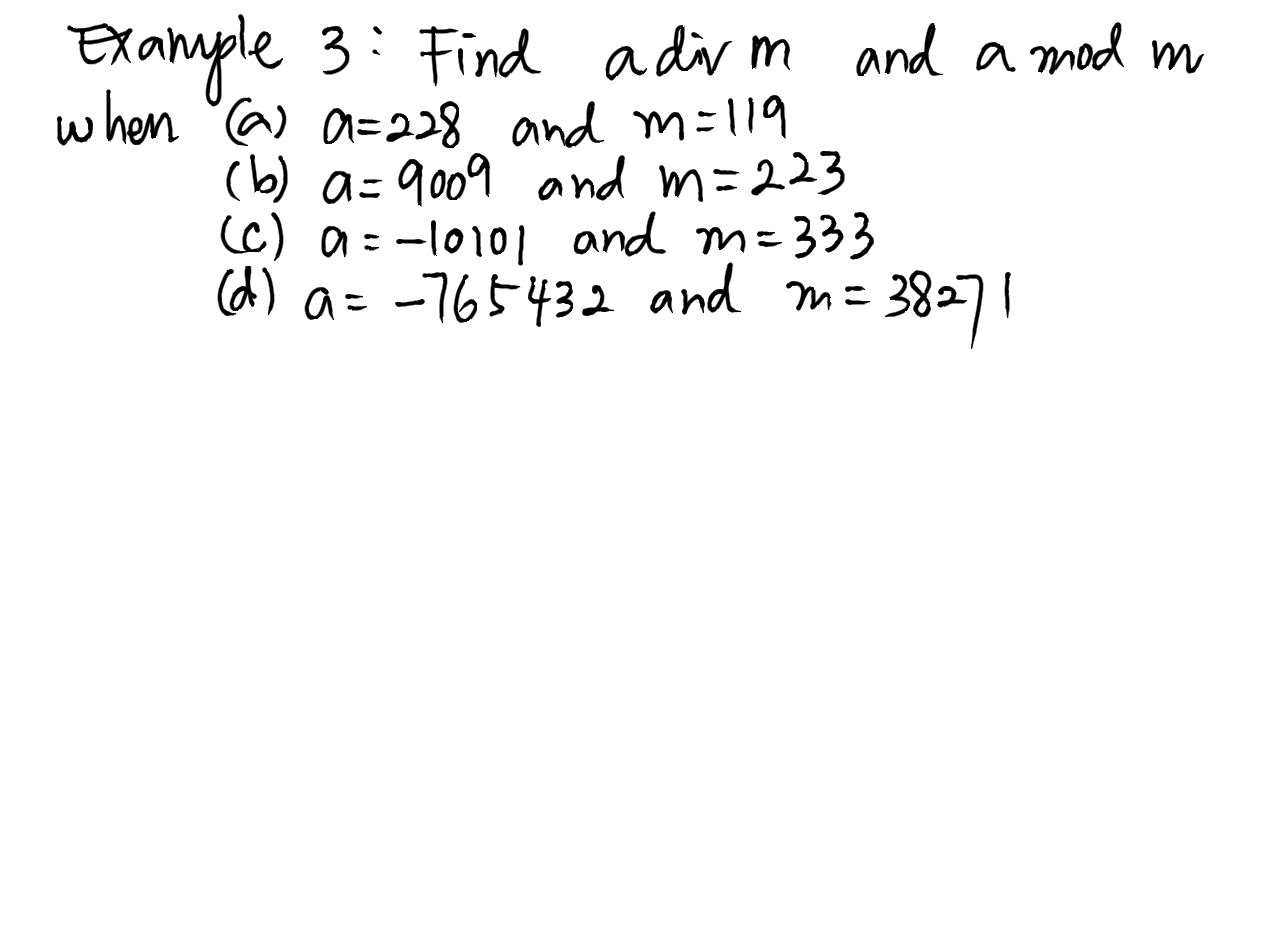 Example 3: Find a div m and a mod m
when (a) a=228 and m=119
(b) a=9009 and m=223
(c) a=-10101 and m=333
(d) a=-765432 and m=38271